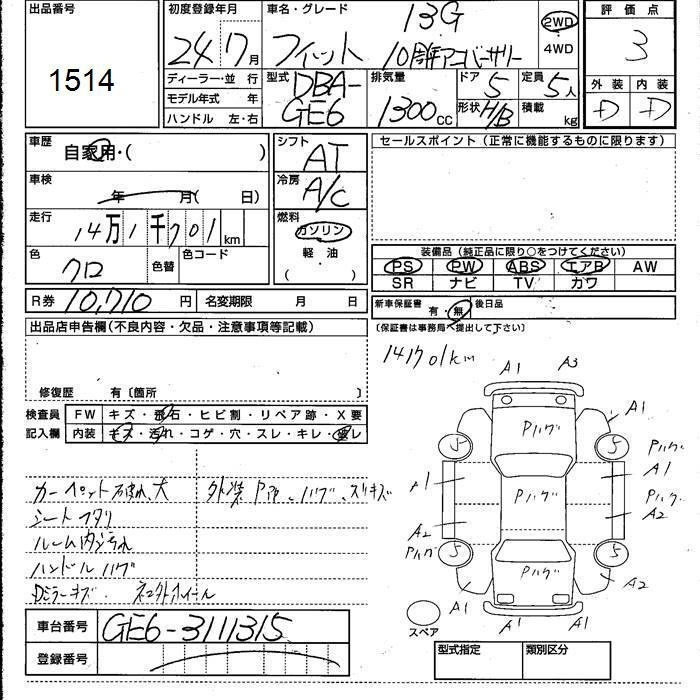 出品番号 初度登録年月 車名・グレード 13G 2WD 評価点
1514 24 7月 フィット 10周年アニバーサリー 4WD 3
ディーラー・並行 型式 DBA-GE6 排気量 1300cc ドア 5 定員 5人 外装 内装
モデル年式 年 形状 H/B 積載 kg D D
ハンドル 左・右
車歴 自家用・( ) シフト AT セールスポイント(正常に機能するものに限ります)
車検 年 月( 日) 冷房 A/C
走行 14万1千701km 燃料 ガソリン
軽・油
( )
色 クロ 色替 色コード
装備品(純正品に限り○をつけてください)
PS PW ABS エアB AW
SR ナビ TV カワ
R券 10,710円 名変期限 月 日 新車保証書 有・無 後日品
出品店申告欄(不良内容・欠品・注意事項等記載) (保証書は事務局へ提出して下さい)
141701km
修復歴 有〔箇所 〕
検査員 FW キズ・飛石・ヒビ割・リペア跡・X要
記入欄 内装 キズ・汚れ・コゲ・穴・スレ・キレ・

A1 A3
A1
Pハゲ
5 5 Pハゲ
A1 Pハゲ A1
Pハゲ
A2 A2
Pハゲ 5 5
Pハゲ
A1 A2
A1 A1
スペア
カーペット 大 外装 ハゲ、スリキズ
シート
ルーム内汚れ
ハンドルハゲ
Dミラーキズ. ホイール
車台番号 GE6-3111315
登録番号
型式指定 類別区分